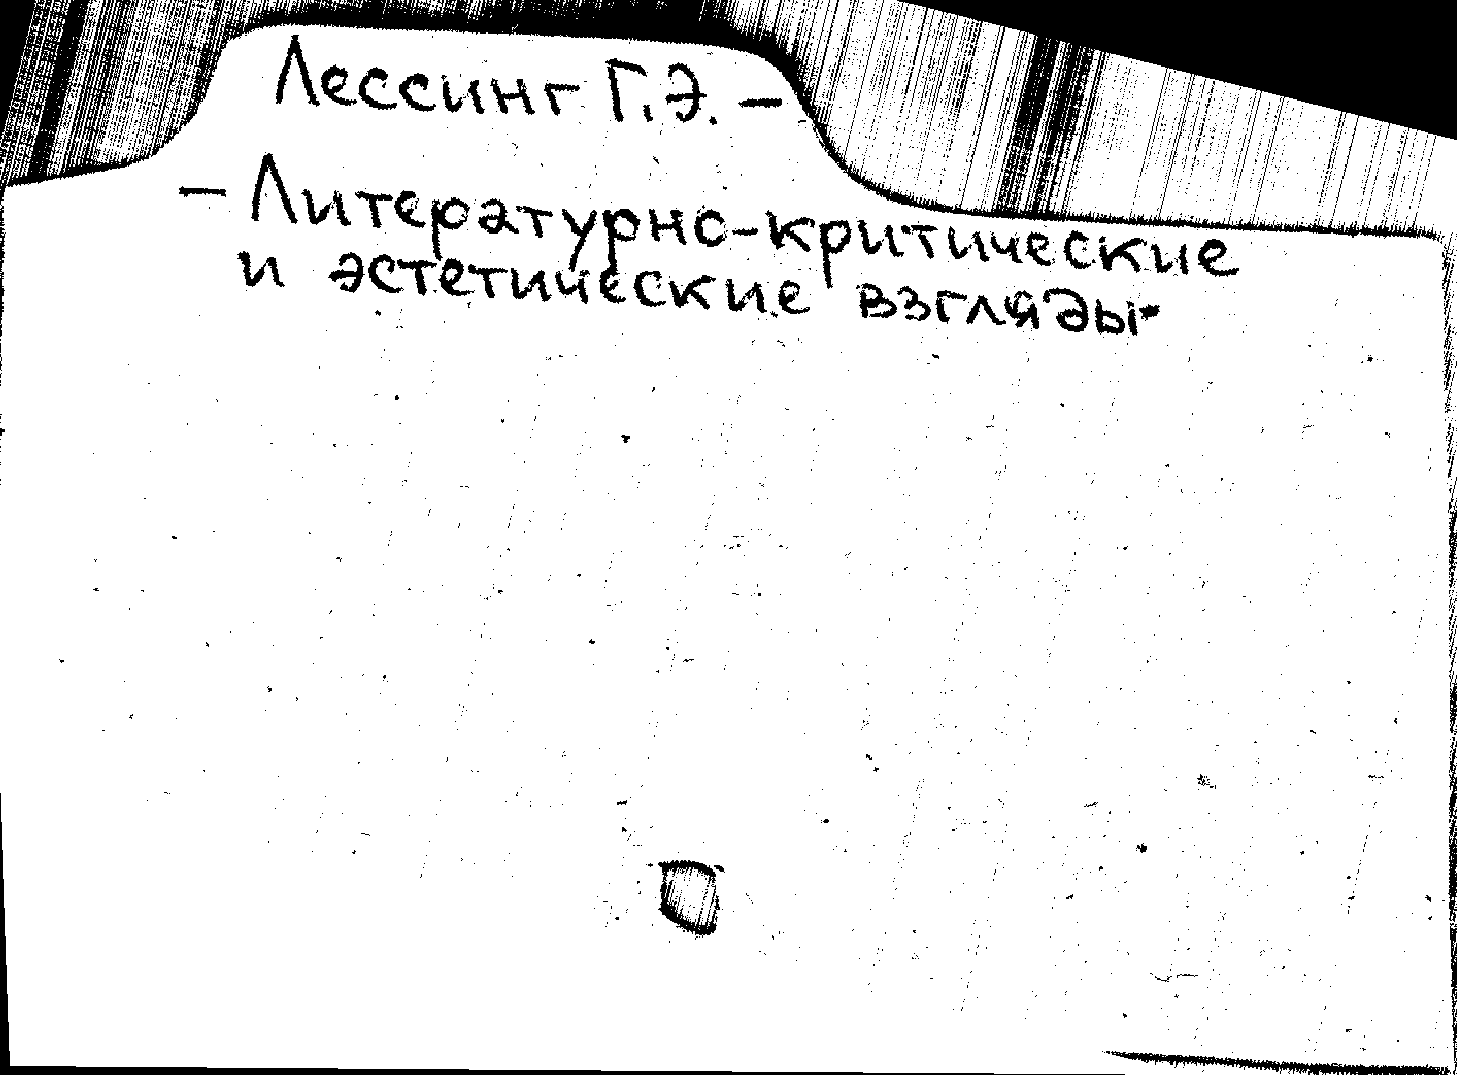 Лессинг Г.Э. —
— Литературно-критические
и эстетические взгляды